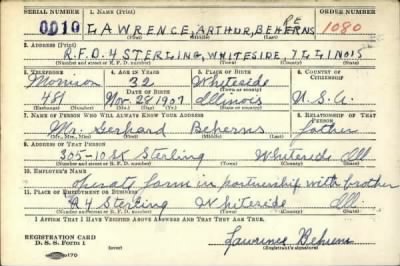 SERIAL NUMBER 1. NAME (Print) ORDER NUMBER
0010 LAWRENCE, ARTHUR, BEHERNS RE 1080
2. ADDRESS (Print)
R.F.D. 4 STERLING, WHITESIDE, ILLINOIS
(Number and street or R. F. D. number) (Town) (County) (State)
3. TELEPHONE 4. AGE IN YEARS 5. PLACE OF BIRTH 6. COUNTRY OF CITIZENSHIP
Morrison 32 Whiteside
DATE OF BIRTH (Town or county)
481 Nov. 28 1907 Illinois U.S.A.
(Exchange) (Number) (Mo.) (Day) (Yr.) (State or country)
7. NAME OF PERSON WHO WILL ALWAYS KNOW YOUR ADDRESS 8. RELATIONSHIP OF THAT PERSON
Mr. Gerhard Beherns father
(Mr., Mrs., Miss) (First) (Middle) (Last)
9. ADDRESS OF THAT PERSON
305-10 St Sterling Whiteside Ill
(Number and street or R. F. D. number) (Town) (County) (State)
10. EMPLOYER'S NAME
operate farm in partnership with brother
11. PLACE OF EMPLOYMENT OR BUSINESS
R 4 Sterling Whiteside Ill
(Number and street or R. F. D. number) (Town) (County) (State)
I AFFIRM THAT I HAVE VERIFIED ABOVE ANSWERS AND THAT THEY ARE TRUE.
REGISTRATION CARD
D. S. S. Form 1 Lawrence Behrens
(Registrant's signature)